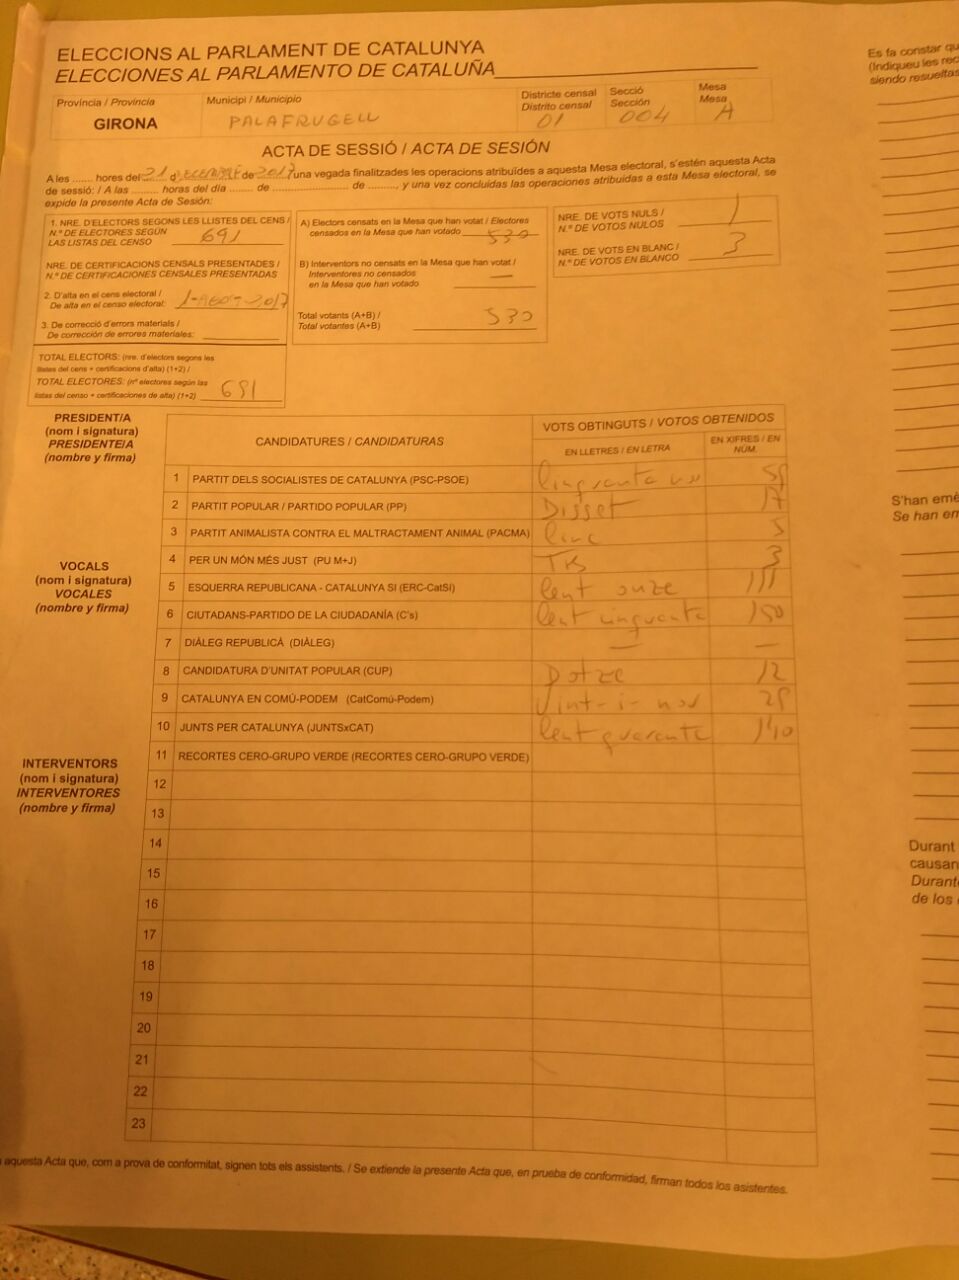 ELECCIONS AL PARLAMENT DE CATALUNYA
ELECCIONES AL PARLAMENTO DE CATALUÑA
Província / Provincia
GIRONA
Municipi / Municipio
PALAFRUGELL
Districte censal
Distrito censal
01
Secció
Sección
004
Mesa
Mesa
A
ACTA DE SESSIÓ / ACTA DE SESIÓN
A les ...... hores del 21 d DECEMBRE de 2017, una vegada finalitzades les operacions atribuïdes a aquesta Mesa electoral, s'estén aquesta Acta
de sessió: / A las ......... horas del día ......... de .......................... de ........., y una vez concluidas las operaciones atribuidas a esta Mesa electoral, se
expide la presente Acta de Sesión:
1. NRE. D'ELECTORS SEGONS LES LLISTES DEL CENS /
N.º DE ELECTORES SEGÚN
LAS LISTAS DEL CENSO 691
NRE. DE CERTIFICACIONS CENSALS PRESENTADES /
N.º DE CERTIFICACIONES CENSALES PRESENTADAS
2. D'alta en el cens electoral /
De alta en el censo electoral: 1-AGOT-2017
3. De correcció d'errors materials /
De corrección de errores materiales:
TOTAL ELECTORS: (nre. d'electors segons les
llistes del cens + certificacions d'alta) (1+2) /
TOTAL ELECTORES: (nº electores según las
listas del censo + certificaciones de alta) (1+2) 691
A) Electors censats en la Mesa que han votat / Electores
censados en la Mesa que han votado 530
B) Interventors no censats en la Mesa que han votat /
Interventores no censados
en la Mesa que han votado —
Total votants (A+B) /
Total votantes (A+B) 530
NRE. DE VOTS NULS /
N.º DE VOTOS NULOS 1
NRE. DE VOTS EN BLANC /
N.º DE VOTOS EN BLANCO 3
PRESIDENT/A
(nom i signatura)
PRESIDENTE/A
(nombre y firma)
VOCALS
(nom i signatura)
VOCALES
(nombre y firma)
INTERVENTORS
(nom i signatura)
INTERVENTORES
(nombre y firma)
CANDIDATURES / CANDIDATURAS
VOTS OBTINGUTS / VOTOS OBTENIDOS
EN LLETRES / EN LETRA
EN XIFRES / EN
NÚM.
1 PARTIT DELS SOCIALISTES DE CATALUNYA (PSC-PSOE) Cinquanta nou 59
2 PARTIT POPULAR / PARTIDO POPULAR (PP) Disset 17
3 PARTIT ANIMALISTA CONTRA EL MALTRACTAMENT ANIMAL (PACMA) Cinc 5
4 PER UN MÓN MÉS JUST (PU M+J) Tres 3
5 ESQUERRA REPUBLICANA - CATALUNYA SI (ERC-CatSí) Cent onze 111
6 CIUTADANS-PARTIDO DE LA CIUDADANÍA (C's) Cent cinquanta 150
7 DIÀLEG REPUBLICÀ (DIÀLEG) — —
8 CANDIDATURA D'UNITAT POPULAR (CUP) Dotze 12
9 CATALUNYA EN COMÚ-PODEM (CatComú-Podem) Vint-i-nou 29
10 JUNTS PER CATALUNYA (JUNTSxCAT) Cent quaranta 140
11 RECORTES CERO-GRUPO VERDE (RECORTES CERO-GRUPO VERDE)
12
13
14
15
16
17
18
19
20
21
22
23
aquesta Acta que, com a prova de conformitat, signen tots els assistents. / Se extiende la presente Acta que, en prueba de conformidad, firman todos los asistentes.
Es fa constar qu
(Indiqueu les rec
siendo resueltas
S'han emè
Se han em
Durant
causan
Durante
de los